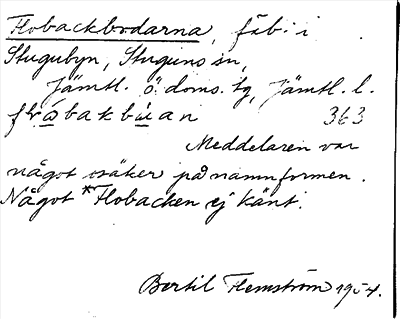 Flobackbodarna, fäb. i
Stugubyn, Stuguns sn,
Jämtl. ö. doms. tg, Jämtl. l.
363
Meddelaren var
något osäker på namnformen.
Något *Flobacken ej känt.
Bertil Flemström 1954.